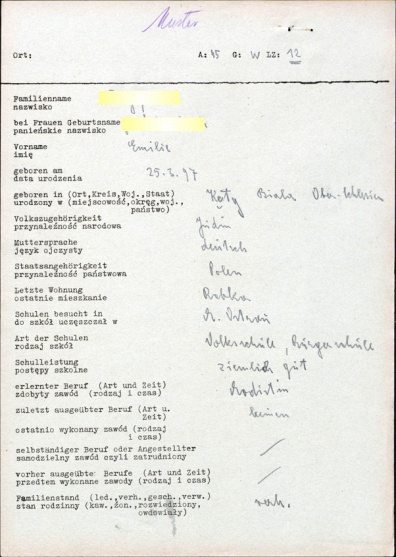 Muster
Ort: A: 45 G: W LZ: 12
Familienname
nazwisko
bei Frauen Geburtsname
panieńskie nazwisko
Vorname Emilie
imię
geboren am 25.3.97
data urodzenia
geboren in (Ort,Kreis,Woj.,Staat) Kąty Biala Ober-Schlesien
urodzony w (miejscowość,okręg,woj.,
państwo)
Volkszugehörigkeit Jüdin
przynależność narodowa
Muttersprache deutsch
język ojczysty
Staatsangehörigkeit Polen
przynależność państwowa
Letzte Wohnung Rabka
ostatnie mieszkanie
Schulen besucht in M. Ostrau
do szkół uczęszczał w
Art der Schulen Volksschule, Bürgerschule
rodzaj szkół
Schulleistung ziemlich gut
postępy szkolne
erlernter Beruf (Art und Zeit) Modistin
zdobyty zawód (rodzaj i czas)
zuletzt ausgeübter Beruf (Art u. keinen
Zeit)
ostatnio wykonany zawód (rodzaj
i czas)
selbständiger Beruf oder Angestellter
samodzielny zawód czyli zatrudniony
vorher ausgeübte Berufe (Art und Zeit)
przedtem wykonane zawody (rodzaj i czas)
Familienstand (led.,verh.,gesch.,verw.) verh.
stan rodzinny (kaw.,żon.,rozwiedziony,
owdowiały)